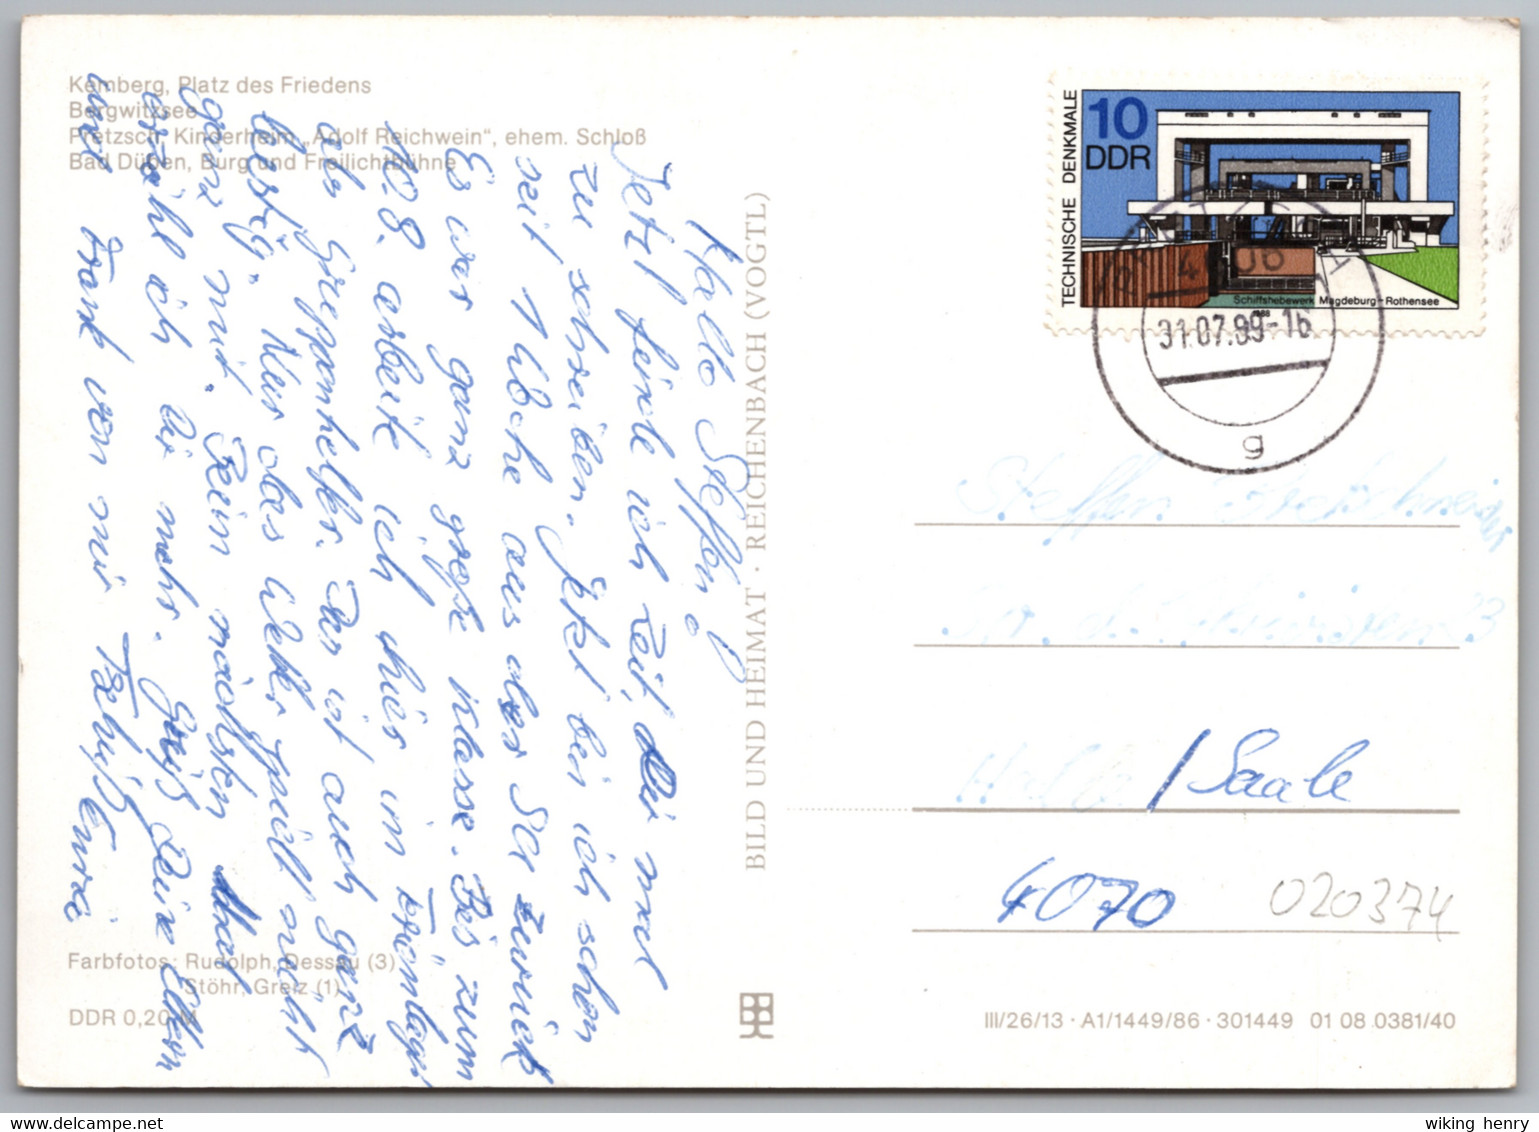 Kemberg, Platz des Friedens
Bergwitzsee
Pretzsch, Kinderheim „Adolf Reichwein“, ehem. Schloß
Bad Düben, Burg und Freilichtbühne
Hallo Steffen!
Jetzt finde ich Zeit, Dir mal
zu schreiben. Jetzt bin ich schon
seit 1 Woche aus der SU zurück
Es war ganz große Klasse. Bis zum
10.8. arbeite ich hier im Ferienlager
als Gruppenhelfer. Das ist auch ganz
lustig. Nur das Wetter spielt nicht
ganz mit. Beim nächsten Mal
erzähl ich Dir mehr. Grüß Deine Eltern
und Frank von mir Tschüß Enrico
BILD UND HEIMAT · REICHENBACH (VOGTL)
TECHNISCHE DENKMALE
10
DDR
Schiffshebewerk Magdeburg-Rothensee
1988
31.07.89-16
g
Steffen
Halle / Saale
4070
020374
Farbfotos: Rudolph, Dessau (3)
Stöhr, Greiz (1)
DDR 0,20 M
III/26/13 · A1/1449/86 · 301449 01 08 0381/40
wiking henry